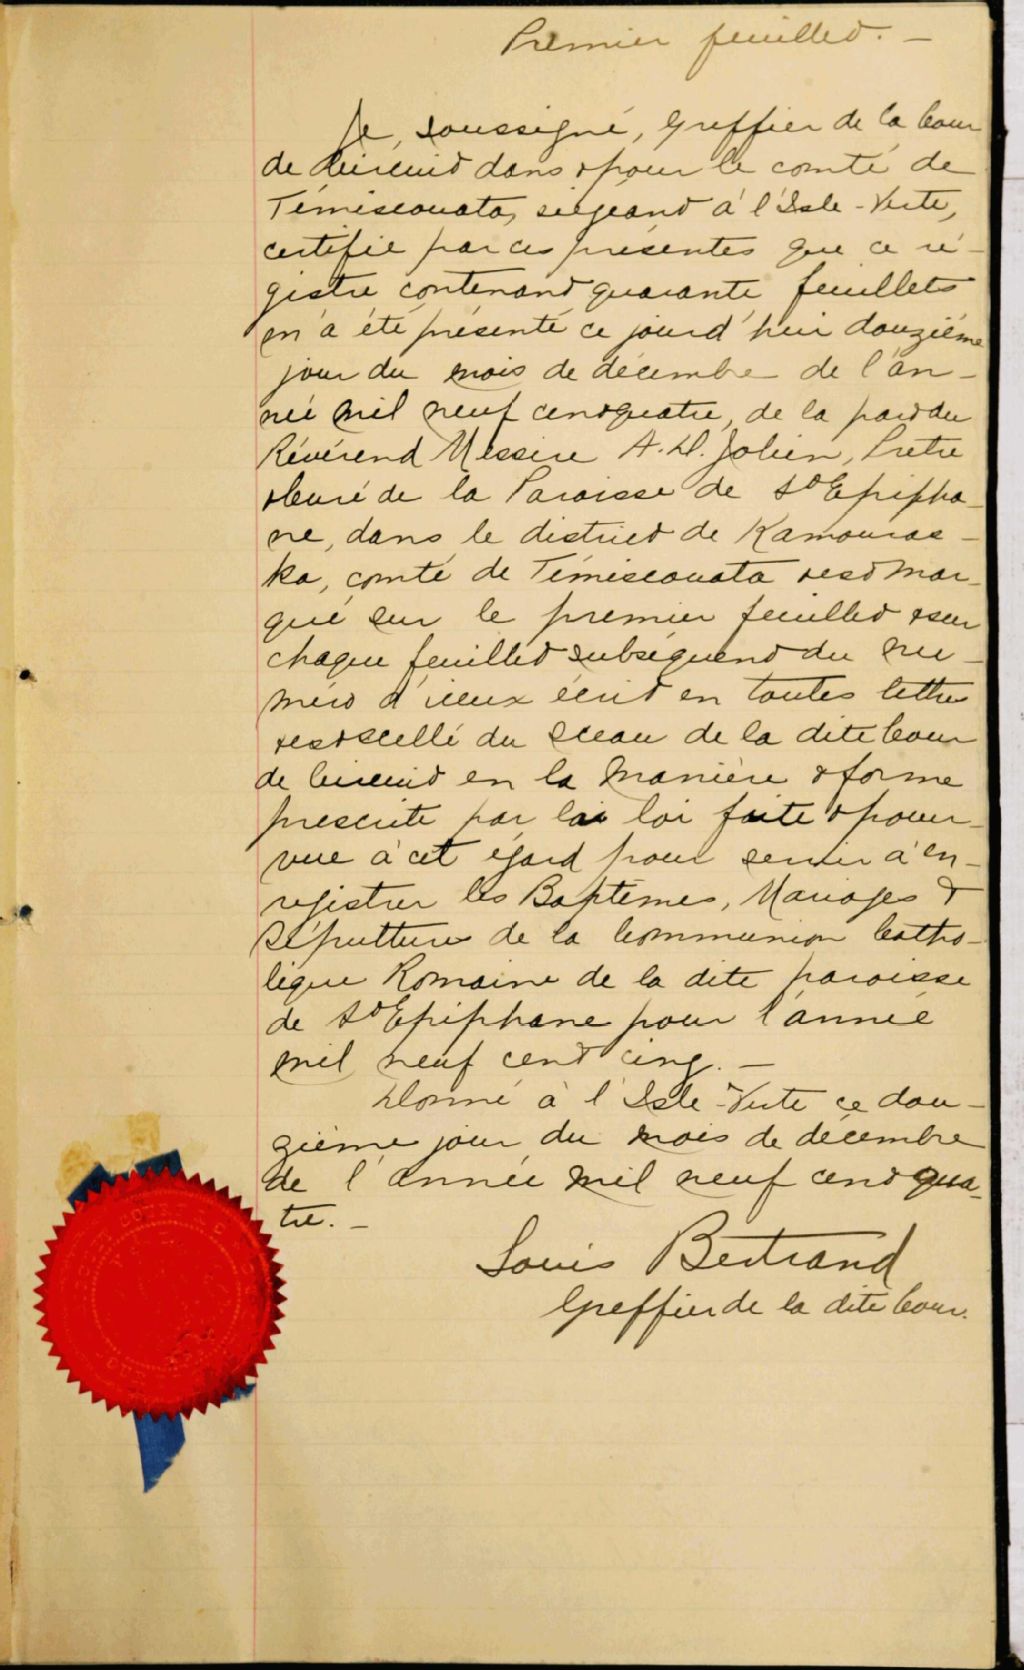 Premier feuillet. —
Je, soussigné, Greffier de la Cour
de Circuit dans & pour le comté de
Témiscouata, siégeant à l'Isle-Verte,
certifie par ces présentes que ce ré-
gistre contenant quarante feuillets
m'a été présenté ce jourd'hui douzième
jour du mois de décembre de l'an-
née mil neuf cent quatre, de la part du
Révérend Messire A. D. Jolien, Prêtre
& Curé de la Paroisse de St Epipha-
ne, dans le district de Kamouras-
ka, comté de Témiscouata & est mar-
qué sur le premier feuillet & sur
chaque feuillet subséquent du nu-
méro d'iceux écrit en toutes lettres
& est scellé du sceau de la dite Cour
de Circuit en la manière & forme
prescrite par la loi faite & pour-
vue à cet égard pour servir à en-
registrer les Baptêmes, Mariages &
Sépultures de la Communion Catho-
lique Romaine de la dite paroisse
de St Epiphane pour l'année
mil neuf cent cinq. —
Donné à l'Isle-Verte ce dou-
zième jour du mois de décembre
de l'année mil neuf cent qua-
tre. —
Louis Bertrand
Greffier de la dite Cour.